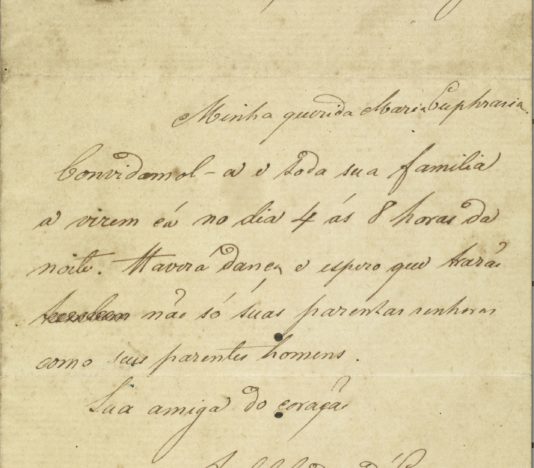 Minha querida Maria Euphrasia
Convidamol-a e toda sua familia
a virem cá no dia 4 ás 8 horas da
noite. Haverá dança e espero que trarás
não só suas parentas senhoras
como seus parentes homens.
Sua amiga do coração